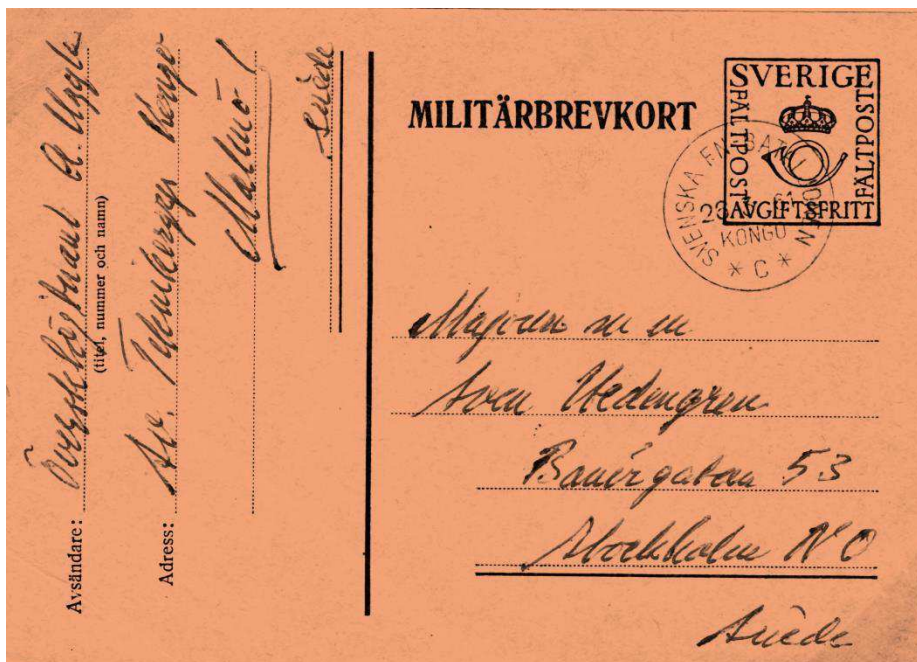 Avsändare: Överstelöjtnant A. Uggla
(titel, nummer och namn)
Adress: Av. Kongo
Malmö 1
Suède
MILITÄRBREVKORT
SVERIGE
FÄLTPOST
FÄLTPOST
AVGIFTSFRITT
SVENSKA FN BATALJONEN
KONGO
* C *
Majoren m m
Sven Wedengren
Banérgatan 53
Stockholm NO
Suède